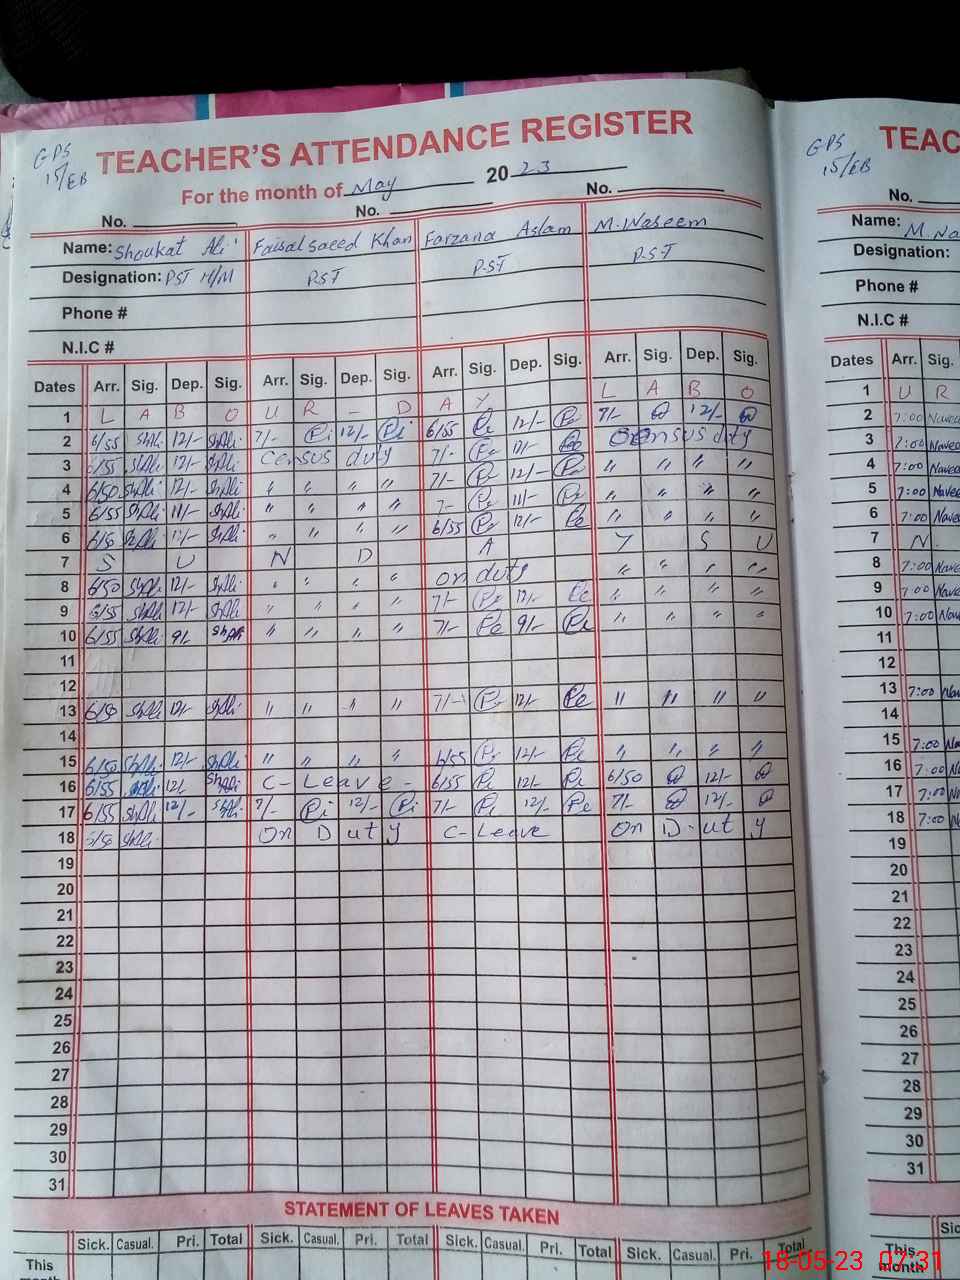 GPS
15/EB
TEACHER'S ATTENDANCE REGISTER
For the month of May 2023
No. No. No.
Name: Shoukat Ali Faisal Saeed Khan Farzana Aslam M. Waseem
Designation: PST H/M PST PST PST
Phone #
N.I.C #
Dates Arr. Sig. Dep. Sig. Arr. Sig. Dep. Sig. Arr. Sig. Dep. Sig. Arr. Sig. Dep. Sig.
1 L A B O U R - D A Y L A B O
2 6/55 ShAli 12/- ShAli 7/- 12/- 6/55 12/- 7/- 12/-
3 6/55 ShAli 12/- ShAli Census duty 7/- 12/- Census duty
4 6/50 ShAli 12/- ShAli " " " " 7/- 12/- " " " "
5 6/55 ShAli 11/- ShAli " " " " 7- 11/- " " " "
6 ShAli ShAli " " " " 6/55 12/- " " " "
7 S U N D A Y S U
8 6/50 ShAli 12/- ShAli " " " " on duty " " " "
9 6/55 ShAli 12/- ShAli " " " " 7/- 12/- " " " "
10 6/55 ShAli 9/- ShAli " " " " 7/- 9/- " " " "
11
12
13 6/50 ShAli 12/- ShAli " " " " 7/- 12/- " " " "
14
15 6/50 ShAli 12/- ShAli " " " " 6/55 12/- " " " "
16 6/55 ShAli 12/ ShAli C-Leave- 6/55 12/- 6/50 12/-
17 6/55 ShAli 12/- ShAli 7/- 12/- 7/- 12/- 7/- 12/-
18 ShAli On Duty C-Leave On Duty
19
20
21
22
23
24
25
26
27
28
29
30
31
STATEMENT OF LEAVES TAKEN
Sick. Casual. Pri. Total Sick. Casual. Pri. Total Sick. Casual. Pri. Total Sick. Casual. Pri. Total
This
month
GPS
15/EB
TEAC
No.
Name: M. Na
Designation:
Phone #
N.I.C #
Dates Arr. Sig.
1 U R
2 7:00 Navee
3 7:00 Navee
4 7:00 Navee
5 7:00 Navee
6 7:00 Navee
7 N
8 7:00 Nave
9 7:00 Nave
10 7:00 Nave
11
12
13 7:00 Nav
14
15 7:00 Nav
16 7:00 Na
17 7:00 Na
18 7:00 N
19
20
21
22
23
24
25
26
27
28
29
30
31
Sic
This
month
18-05-23 07:31